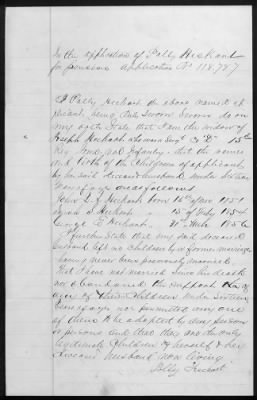 In the application of Polly Heckart
for pension Application No 118,787
I Polly Heckart the above named ap
plicant being duly sworn do on
my oath State that I am the widow of
Joseph Heckart who was in Co 15th
Reg Ind Vol Infantry that the names
and birth of the Children of applicant
by her said deceased husband under Sixteen
Years of age are as follows
born 16th of Nov 1851
Heckart " 15th of July 1854
George E Heckart " 31st 1856
I further State that my said deceased
husband left no children by a former marriage
having never been previously married
that I have not married since his death
nor abandoned the support of
any of their Children under Sixteen
Years of age nor permitted any one
of them to be adopted by any person
or persons and that they are the only
legitimate Children of herself & her
deceased husband now living
Polly Heckart